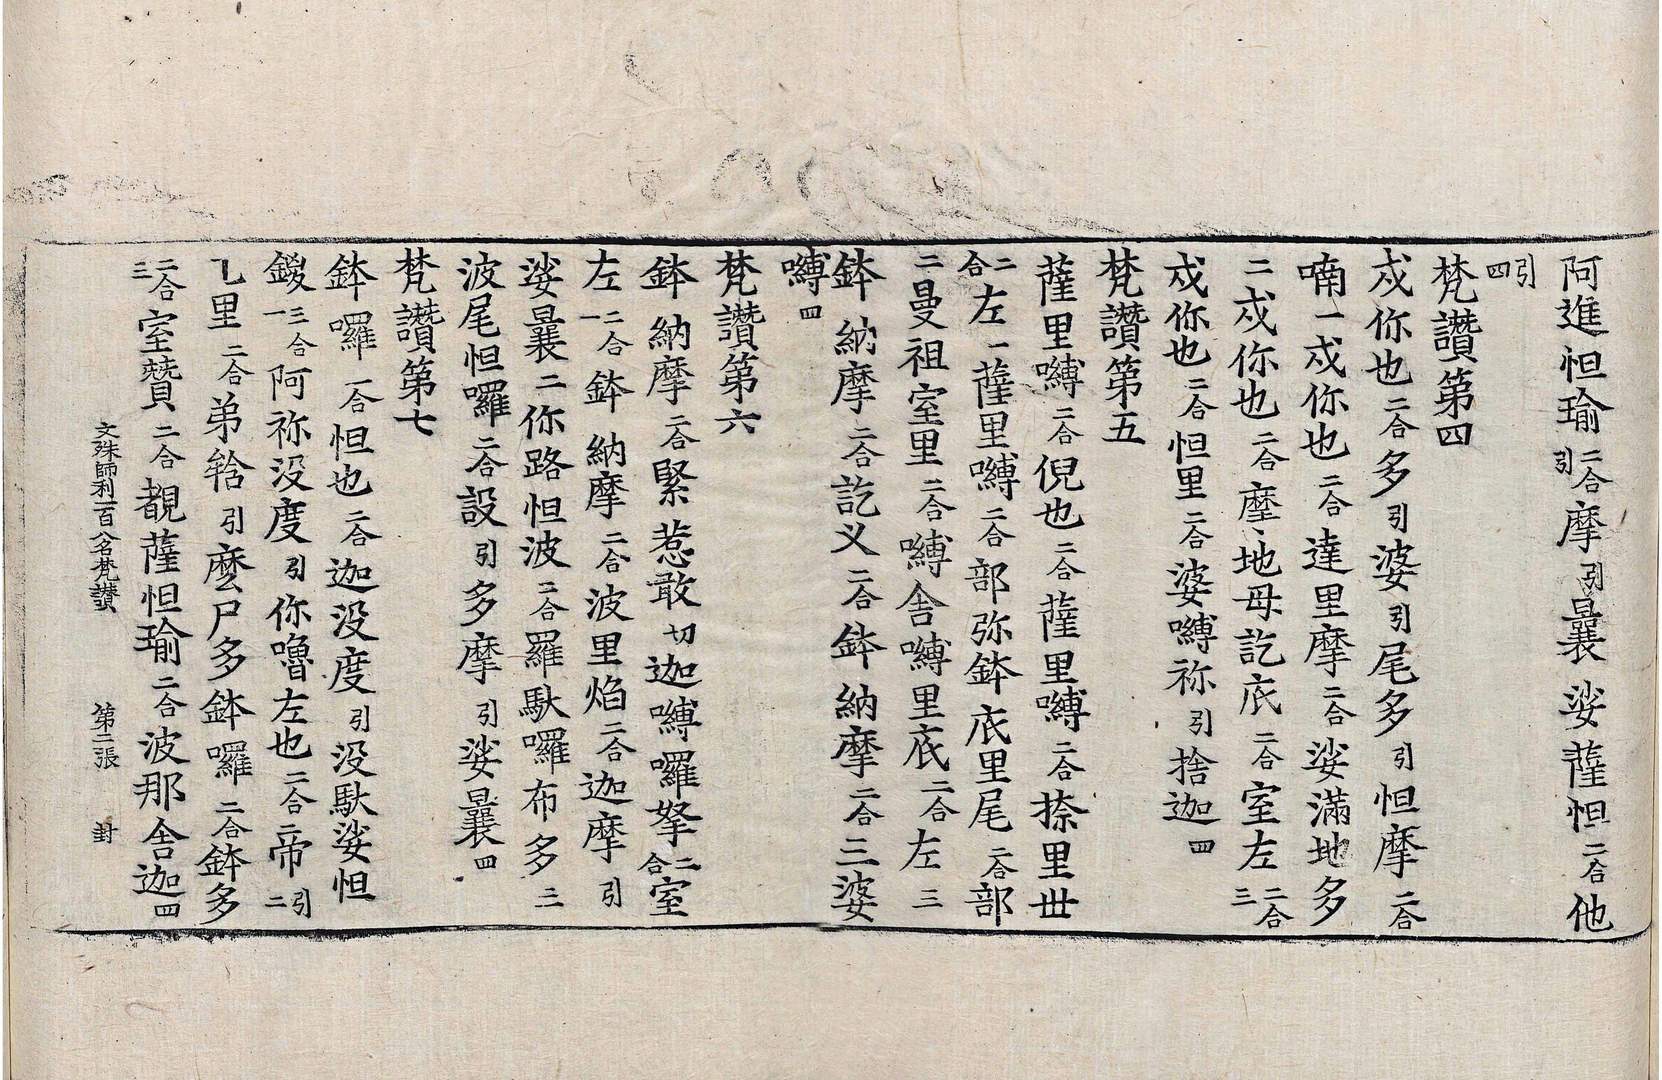 阿進怛瑜二合引摩引曩娑薩怛二合他
引四
梵讚第四
戍你也二合多引婆引尾多引怛摩二合
喃一戍你也二合達里摩二合娑滿地多
二戍你也二合摩地母訖底二合室左二合三
戍你也二合怛里二合婆嚩祢引捨迦四
梵讚第五
薩里嚩二合倪也二合薩里嚩二合捺里世
二合左一薩里嚩二合部弥鉢底里尾二合部
二曼祖室里二合嚩舍嚩里底二合左三
鉢納摩二合訖义二合鉢納摩二合三婆
嚩四
梵讚第六
鉢納摩二合緊惹敢切迦嚩囉拏二合室
左二合一鉢納摩二合波里焰二合迦摩引
娑曩二你路怛波二合羅馱囉布多三
波尾怛囉二合設引多摩引娑曩四
梵讚第七
鉢囉二合怛也二合迦没度引没馱娑怛
鑁三合一阿祢没度引你嚕左也二合帝引二
乁里二合弟辂引麼尸多鉢囉二合鉢多
二合三室贊二合覩薩怛瑜二合波那舍迦四
文殊師利一百八名梵讚 第二張 封